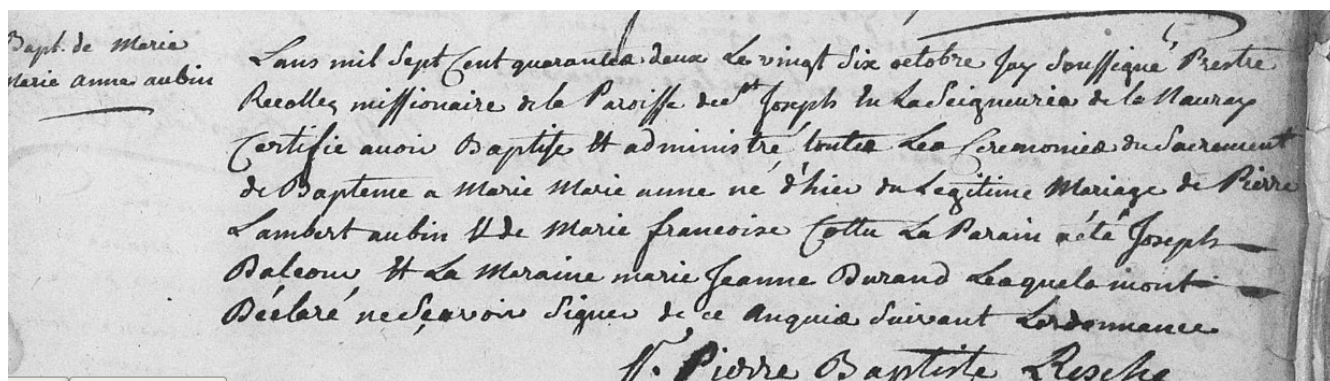 Bapt. de Marie
Marie anne aubin
Lans mil Sept Cent quarantes deux Le vingt Six octobre Jay Souffigné Prestre
Recollez miffionaire de la Paroiffe de St Joseph En La Seigneuries de la
Certifie avoir Baptife Et administré toutes Les Ceremonies du Sacrement
de Bapteme a Marie Marie anne né d'hier du Legitime Mariage de Pierre
Lambert aubin Et de Marie francoise Cottu La Parain a été Joseph
Et La Maraine marie Jeanne Durand Lesquels mont
Déclaré ne Sçavoir Signer de ce Suivant Lordonnance
f. Pierre Baptiste Resche